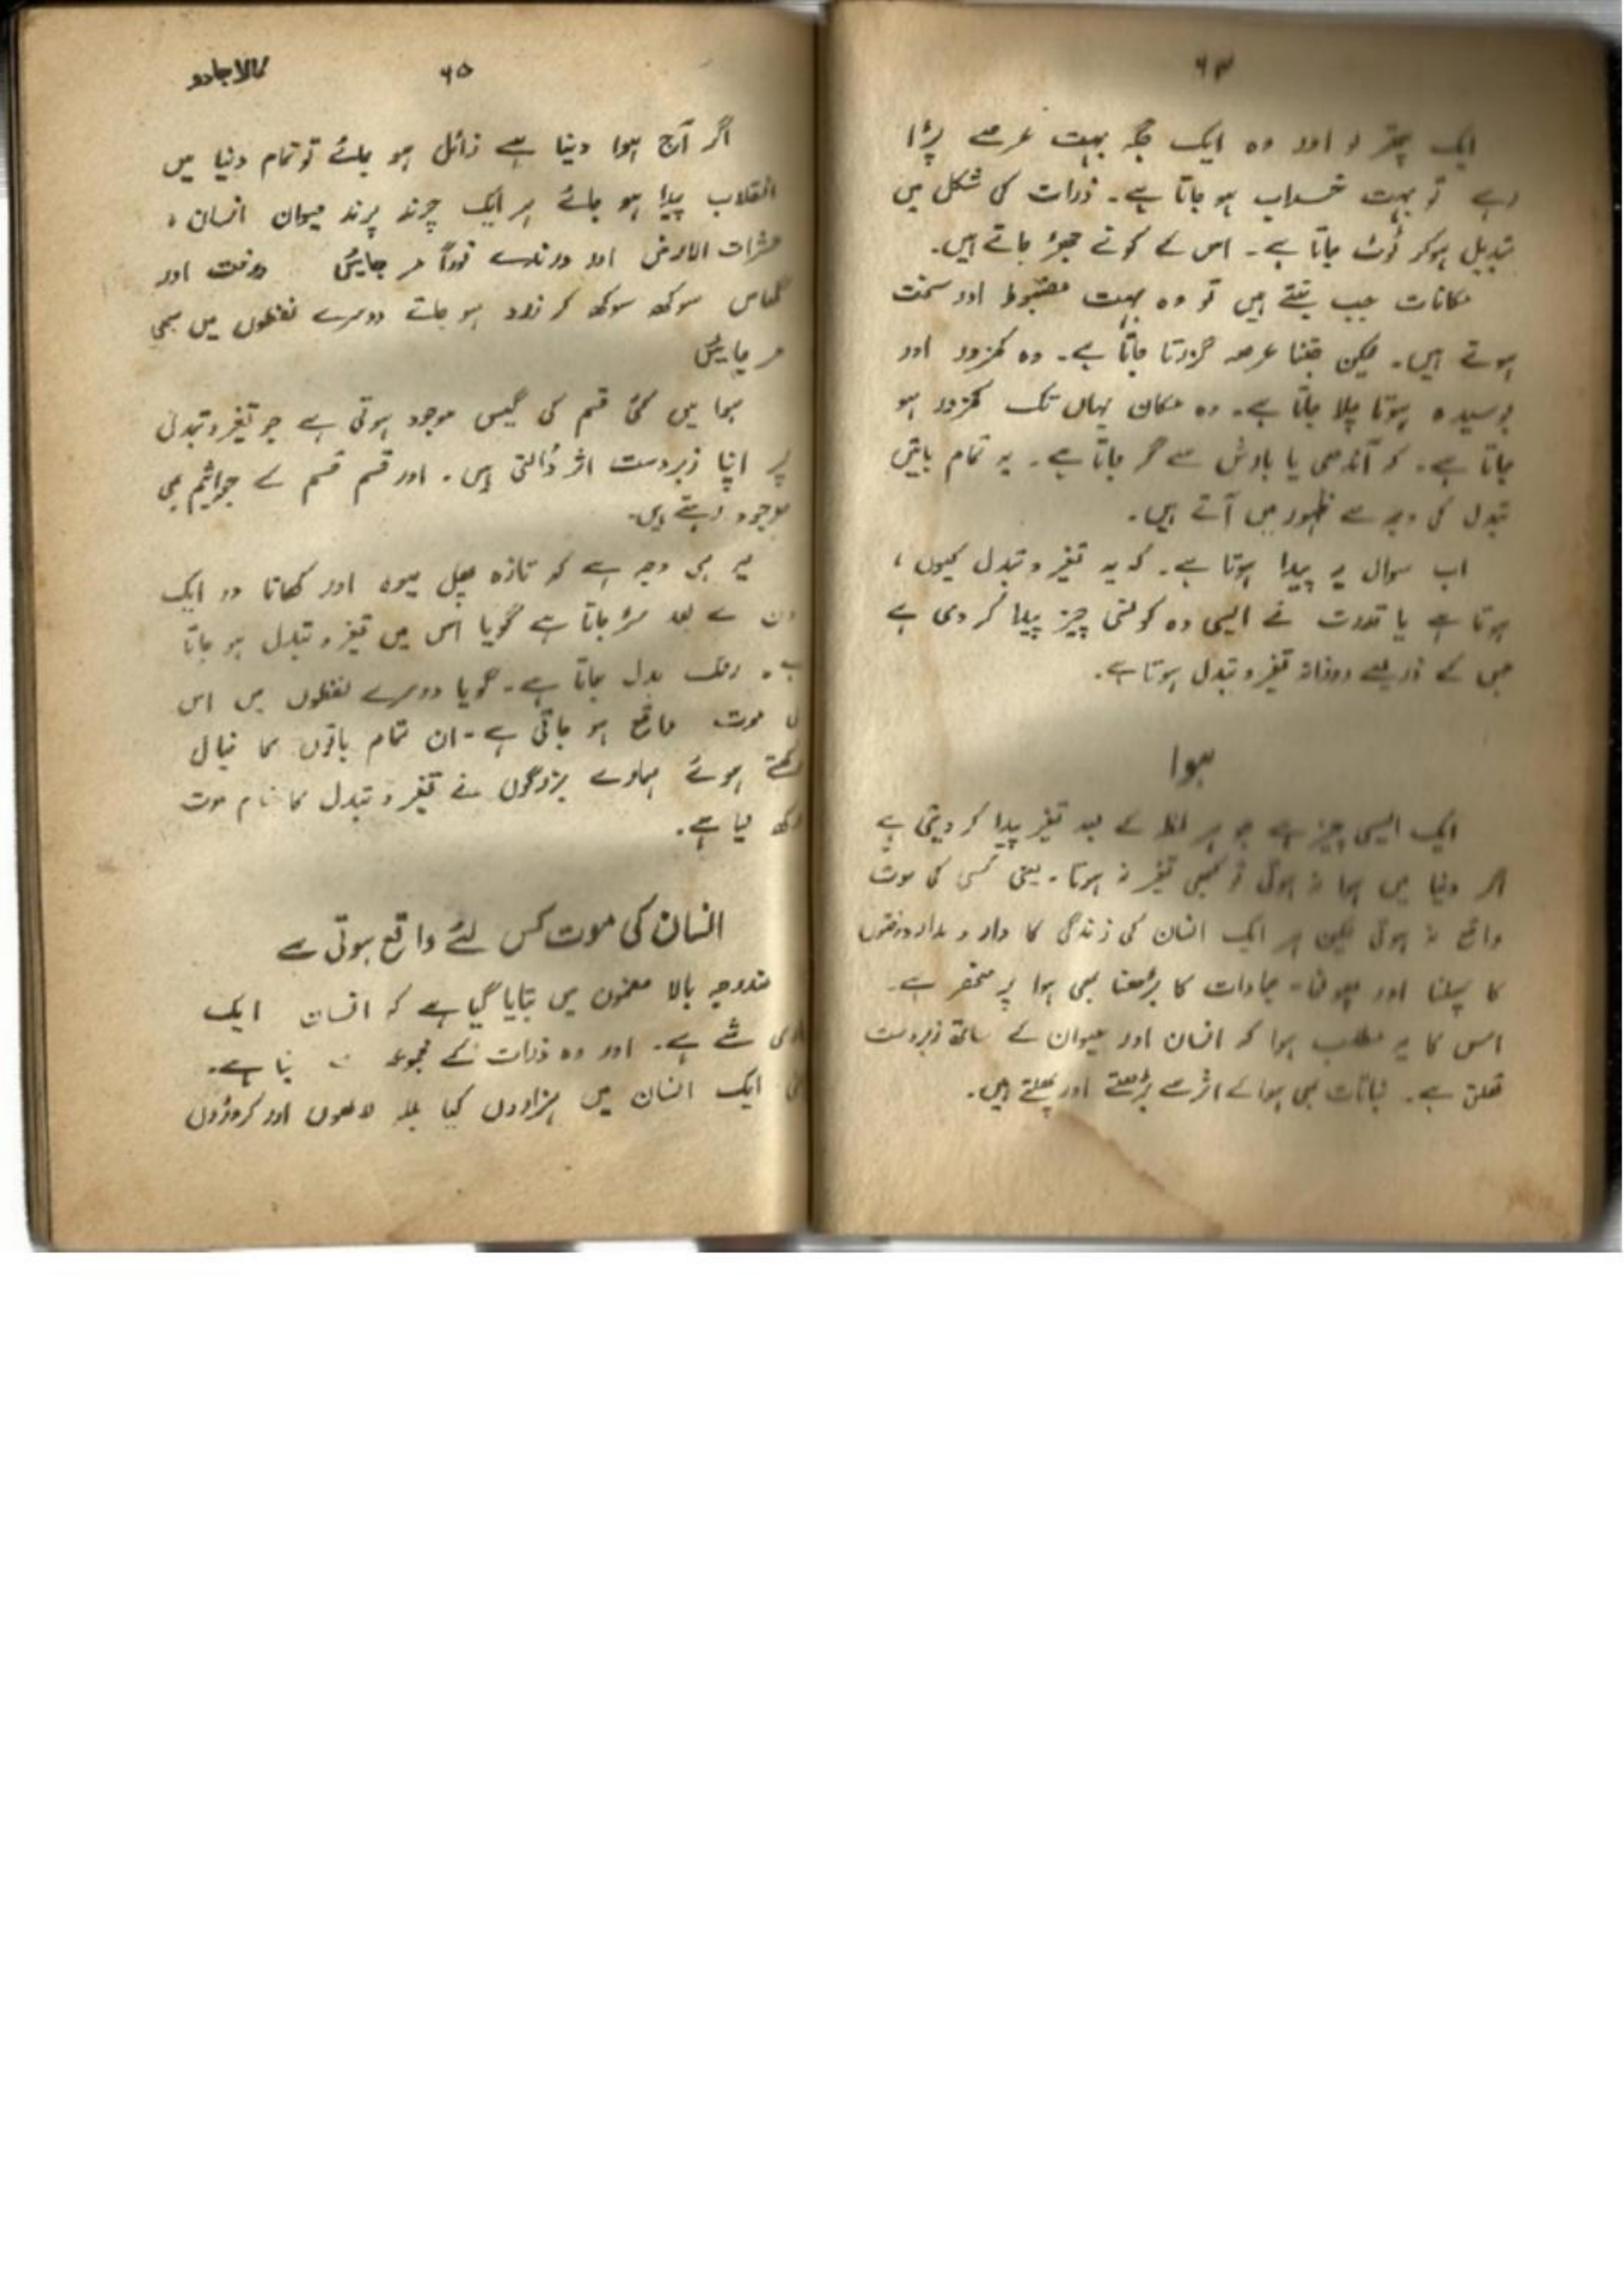 ۶۴
ایک پتھر لو اور وہ ایک جگہ بہت عرصے پڑا
رہے تو بہت خراب ہو جاتا ہے۔ ذرات کی شکل میں
تبدیل ہوکر ٹوٹ جاتا ہے۔ اس کے کونے جھڑ جاتے ہیں۔
مکانات جب بنتے ہیں تو وہ بہت مضبوط اور سخت
ہوتے ہیں۔ لیکن جتنا عرصہ گزرتا جاتا ہے۔ وہ کمزور اور
بوسیدہ ہوتا چلا جاتا ہے۔ وہ مکان یہاں تک کمزور ہو
جاتا ہے۔ کہ آندھی یا بارش سے گر جاتا ہے۔ یہ تمام باتیں
تبدل کی وجہ سے ظہور میں آتے ہیں۔
اب سوال یہ پیدا ہوتا ہے۔ کہ یہ تغیر و تبدل کیوں،
ہوتا ہے یا قدرت نے ایسی وہ کونسی چیز پیدا کر دی ہے
جس کے ذریعے روزانہ تغیر و تبدل ہوتا ہے۔
ہوا
ایک ایسی چیز ہے جو ہر لحظہ کے بعد تغیر پیدا کر دیتی ہے
اگر دنیا میں ہوا نہ ہوتی تو کبھی تغیر نہ ہوتا۔ یعنی کسی کی موت
واقع نہ ہوتی لیکن ہر ایک انسان کی زندگی کا دار و مدار درختوں
کا پھلنا اور پھولنا۔ جمادات کا بڑھنا بھی ہوا پر منحصر ہے۔
اس کا یہ مطلب ہوا کہ انسان اور حیوان کے ساتھ زبردست
تعلق ہے۔ نباتات بھی ہوا کے اثر سے بڑھتے اور پھلتے ہیں۔
۶۵ کالا جادو
اگر آج ہوا دنیا سے زائل ہو جائے تو تمام دنیا میں
انقلاب پیدا ہو جائے ہر ایک چرند پرند حیوان انسان،
حشرات الارض اور درندے فوراً مر جائیں درخت اور
گھاس سوکھ سوکھ کر زرد ہو جاتے دوسرے لفظوں میں سبھی
مر جائیں
ہوا میں کئی قسم کی گیس موجود ہوتی ہے جو تغیر و تبدلی
پر اپنا زبردست اثر ڈالتی ہیں۔ اور قسم قسم کے جراثیم بھی
موجود رہتے ہیں۔
یہ ہی وجہ ہے کہ تازہ پھل میوہ اور کھانا دو ایک
دن کے بعد سڑ جاتا ہے گویا اس میں تغیر و تبدل ہو جاتا
ہے۔ رنگ بدل جاتا ہے۔ گویا دوسرے لفظوں میں اس
موت واقع ہو جاتی ہے۔ ان تمام باتوں کا خیال
رکھتے ہوئے ہمارے بزرگوں نے تغیر و تبدل کا نام موت
رکھ لیا ہے۔
انسان کی موت کس لئے واقع ہوتی ہے
مندرجہ بالا مضمون میں بتایا گیا ہے کہ انسان ایک
شے ہے۔ اور وہ ذرات کے مجموعہ بنا ہے۔
ایک انسان میں ہزاروں کیا بلکہ لاکھوں اور کروڑوں